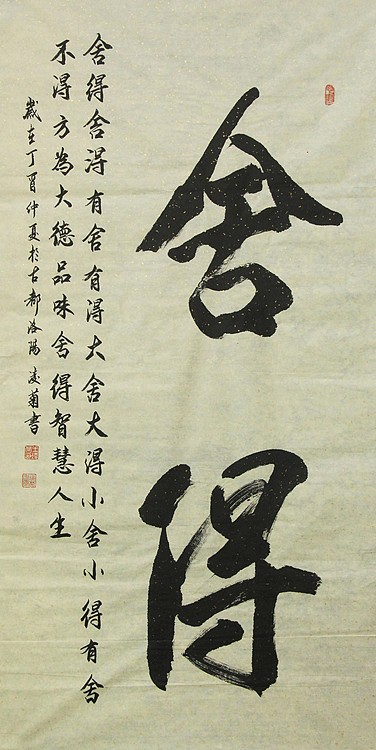 舍得
舍得舍得有舍有得大舍大得小舍小得有舍
不得方為大德品味舍得智慧人生
歲在丁酉仲夏於古都洛陽凌菊書